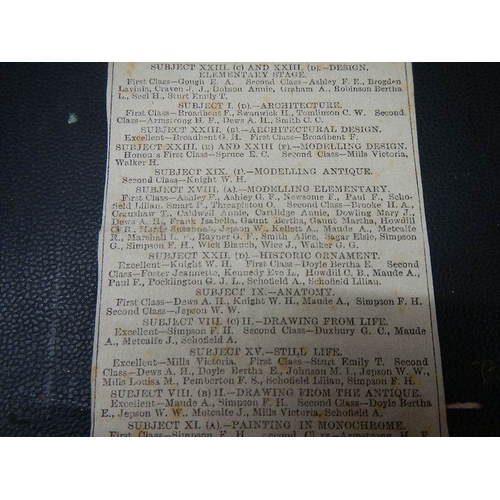 SUBJECT XXIII. (C) AND XXIII. (D).—DESIGN,
ELEMENTARY STAGE.
First Class—Gough E. A. Second Class—Ashley F. E., Brogden
Lavinia, Craven J. J., Dobson Annie, Graham A., Robinson Bertha
L., Seel H., Sturt Emily T.
SUBJECT I. (D).—ARCHITECTURE.
First Class—Broadbent F., Swanwick H., Tomlinson C. W. Second
Class—Armstrong H. F., Dews A. H., Smith C. C.
SUBJECT XXIII. (B).—ARCHITECTURAL DESIGN.
Excellent—Broadbent G. H. First Class—Broadbent F.
SUBJECT XXIII. (E) AND XXIII (F).—MODELLING DESIGN.
Honours First Class—Spruce E. C. Second Class—Mills Victoria,
Walker H.
SUBJECT XIX. (I).—MODELLING ANTIQUE.
Second Class—Knight W. H.
SUBJECT XVIII. (A).—MODELLING ELEMENTARY.
First Class—Ashley F., Ashley G. F., Newsome F., Paul F., Scho-
field Lilian, Smart F., Threapleton O. Second Class—Brooke H. A.,
Crawshaw T., Caldwell Annie, Cartlidge Annie, Dowling Mary J.,
Dews A. H., Frank Isabella, Gaunt Bertha, Gaunt Martha, Howdill
C. B., Hardy Susannah, Jepson W., Kellett A., Maude A., Metcalfe
R., Marshall L. F., Rayner G. F., Smith Alice, Sagar Elsie, Simpson
G., Simpson F. H., Wick Blanch, Wice J., Walker G. G.
SUBJECT XXII. (D).—HISTORIC ORNAMENT.
Excellent—Knight W. H. First Class—Doyle Bertha E. Second
Class—Foster Jeannette, Kennedy Eve L., Howdill C. B., Maude A.,
Paul F., Pocklington G. J. L., Schofield A., Schofield Lilian.
SUBJECT IX.—ANATOMY.
First Class—Dews A. H., Knight W. H., Maude A., Simpson F. H.
Second Class—Jepson W. W.
SUBJECT VIII. (C) II.—DRAWING FROM LIFE.
Excellent—Simpson F. H. Second Class—Duxbury G. C., Maude
A., Metcalfe J., Schofield A.
SUBJECT XV.—STILL LIFE.
Excellent—Mills Victoria. First Class—Sturt Emily T. Second
Class—Dews A. H., Doyle Bertha E., Johnson M. I., Jepson W. W.,
Mills Louisa M., Pemberton F. S., Schofield Lilian, Simpson F. H.
SUBJECT VIII. (B) II.—DRAWING FROM THE ANTIQUE.
Excellent—Maude A., Simpson F. H. Second Class—Doyle Bertha
E., Jepson W. W., Metcalfe J., Mills Victoria, Schofield A.
SUBJECT XI. (A).—PAINTING IN MONOCHROME.
First Class—Simpson F. H. Second Class—Armstrong H. F.